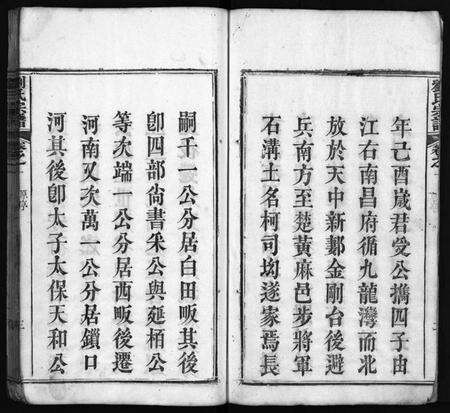 劉氏宗譜
年己酉歲君受公擕四子由
江右南昌府循九龍灣而北
放於天中新鄼金剛台後避
兵南方至楚黃麻邑步將軍
石溝土名柯司㘭遂家焉長
嗣千一公分居白田畈其後
卽四部尙書釆公與延栢公
等次端一公分居西畈後遷
河南又次萬一公分居鎖口
河其後卽太子太保天和公